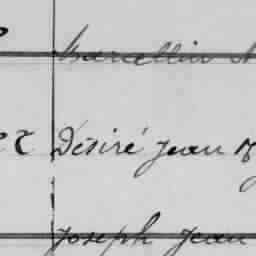 Marcellin
Désiré Jean
Joseph Jean